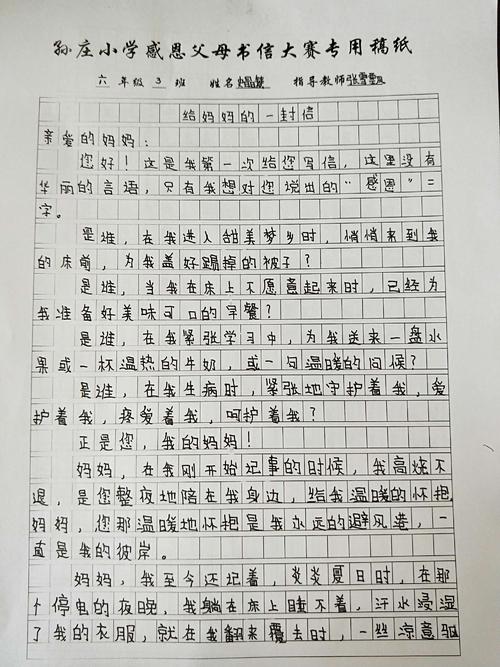 孙庄小学感恩父母书信大赛专用稿纸
六 年级 3 班 姓名 指导教师 张雪
给妈妈的一封信
亲爱的妈妈：
您好！这是我第一次给您写信，这里没有
华丽的言语，只有我想对您说出的“感恩”二
字。
是谁，在我进入甜美梦乡时，悄悄来到我
的床前，为我盖好踢掉的被子？
是谁，当我在床上不愿意起来时，已经为
我准备好美味可口的早餐？
是谁，在我紧张学习中，为我送来一盘水
果或一杯温热的牛奶，或一句温暖的问候？
是谁，在我生病时，紧张地守护着我，爱
护着我，疼爱着我，呵护着我？
正是您，我的妈妈！
妈妈，在我刚开始记事的时候，我高烧不
退，是您整夜地陪在我身边，给我温暖的怀抱。
妈妈，您那温暖地怀抱是我永远的避风港，一
直是我的彼岸。
妈妈，我至今还记着，炎炎夏日时，在那
个停电的夜晚，我躺在床上睡不着，汗水浸湿
了我的衣服，就在我翻来覆去时，一丝凉意驱